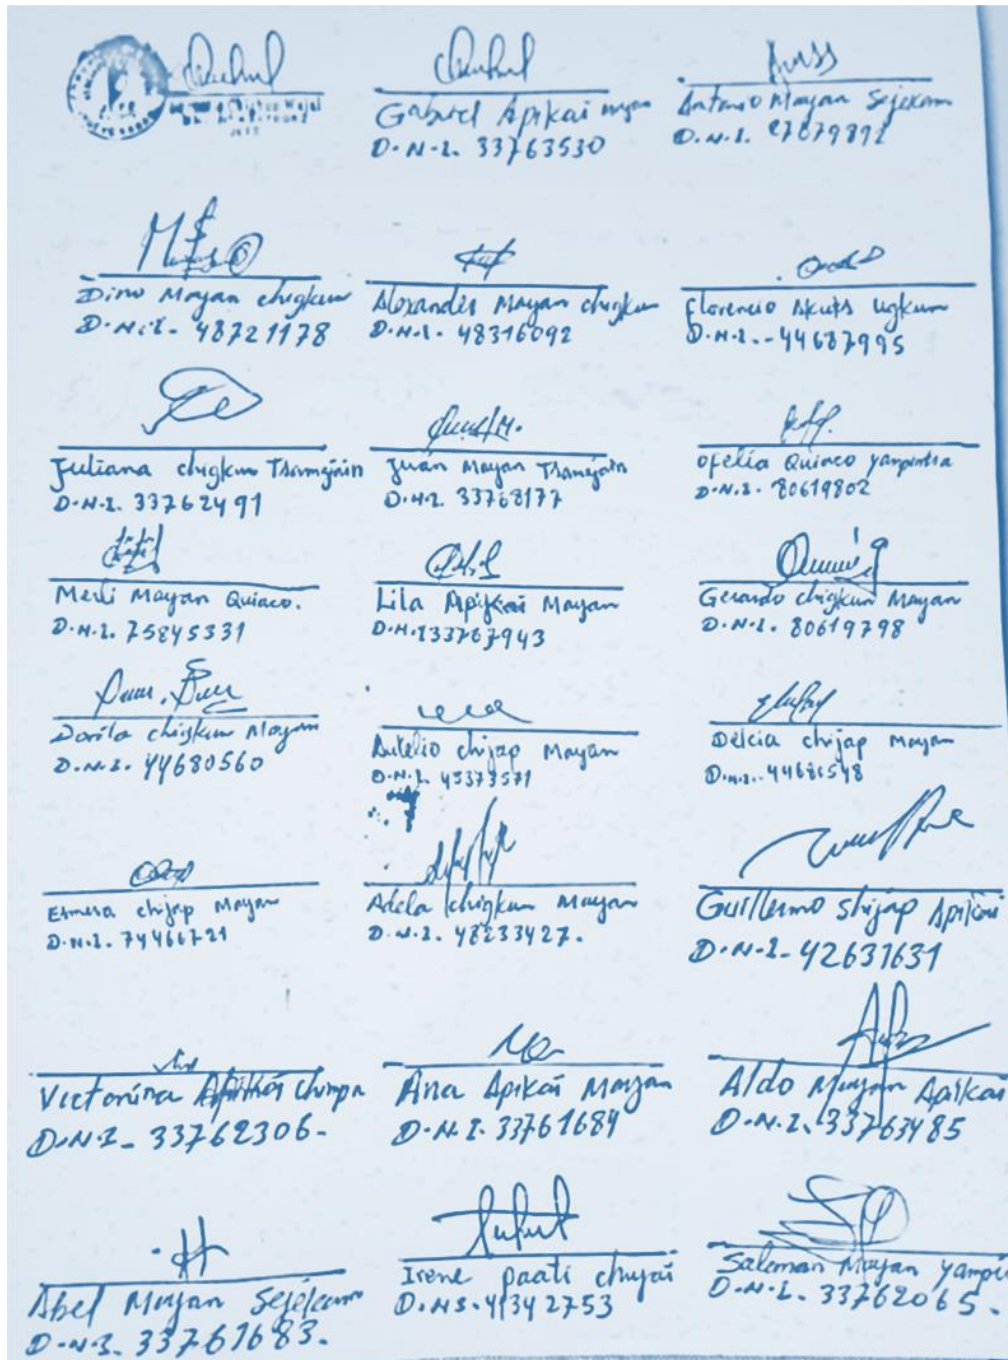 Gabriel Apikai
D.N.I. 33763530
Antonio Mayan Sejekam
D.N.I. 27679892
Dino Mayan chigkun
D.N.I. 48721178
Alexander Mayan chigkun
D.N.I. 48316092
Florencio Akuts Ugkum
D.N.I. 44687995
Juliana chigkun Tsamajain
D.N.I. 33762491
Juan Mayan Tsamajain
D.N.I. 33768177
Ofelia Quiaco yampintsa
D.N.I. 80619802
Merli Mayan Quiaco.
D.N.I. 75845331
Lila Apikai Mayan
D.N.I 33767943
Gerardo chigkun Mayan
D.N.I. 80619798
Dorila chigkun Mayan
D.N.I. 44680560
Aurelio chijap Mayan
D.N.I. 45373571
Delcia chijap Mayan
D.N.I.
Esmera chijap Mayan
D.N.I. 74466721
Adela chigkun Mayan
D.N.I. 48233427.
Guillermo shijap Apikai
D.N.I- 42637631
Victorina Apikai chimpa
D.N.I- 33762306-
Ana Apikai Mayan
D.N.I. 33761684
Aldo Mayan Apikai
D.N.I. 33763485
Abel Mayan Sejekam
D.N.I. 33761683.
Irene paati chujai
D.N.I. 41342753
Saloman Mayan
D.N.I. 33762065.